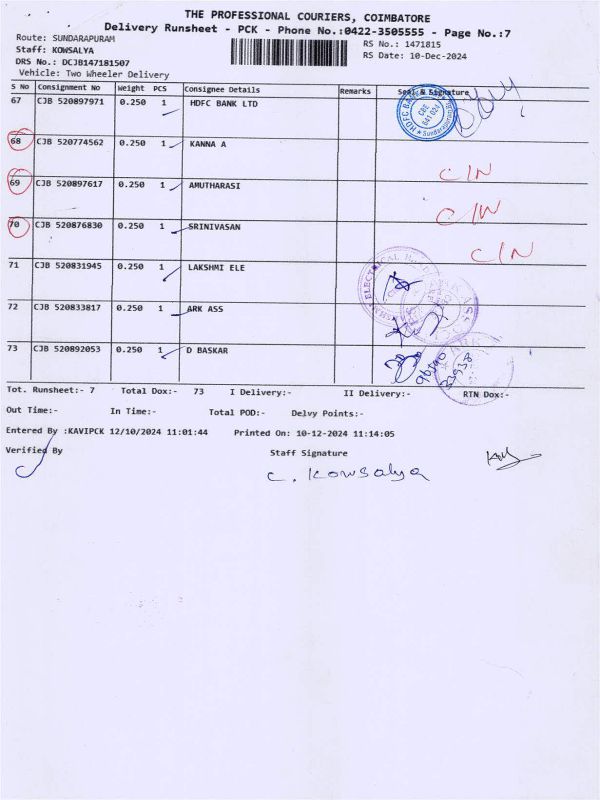 THE PROFESSIONAL COURIERS, COIMBATORE
Delivery Runsheet - PCK - Phone No.:0422-3505555 - Page No.:7
Route: SUNDARAPURAM
RS No.: 1471815
Staff: KOWSALYA
RS Date: 10-Dec-2024
DRS No.: DCJB147181507
Vehicle: Two Wheeler Delivery
S No Consignment No Weight PCS Consignee Details Remarks Seal & Signature
67 CJB 520897971 0.250 1 HDFC BANK LTD
HDFC BANK CBE 641 024 Sundarapuram
68 CJB 520774562 0.250 1 KANNA A C/N
69 CJB 520897617 0.250 1 AMUTHARASI C/N
70 CJB 520876830 0.250 1 SRINIVASAN C/N
71 CJB 520831945 0.250 1 LAKSHMI ELE
72 CJB 520833817 0.250 1 ARK ASS
73 CJB 520892053 0.250 1 D BASKAR
Tot. Runsheet:- 7 Total Dox:- 73 I Delivery:- II Delivery:- RTN Dox:-
Out Time:- In Time:- Total POD:- Delvy Points:-
Entered By :KAVIPCK 12/10/2024 11:01:44 Printed On: 10-12-2024 11:14:05
Verified By Staff Signature
C. Kowsalya